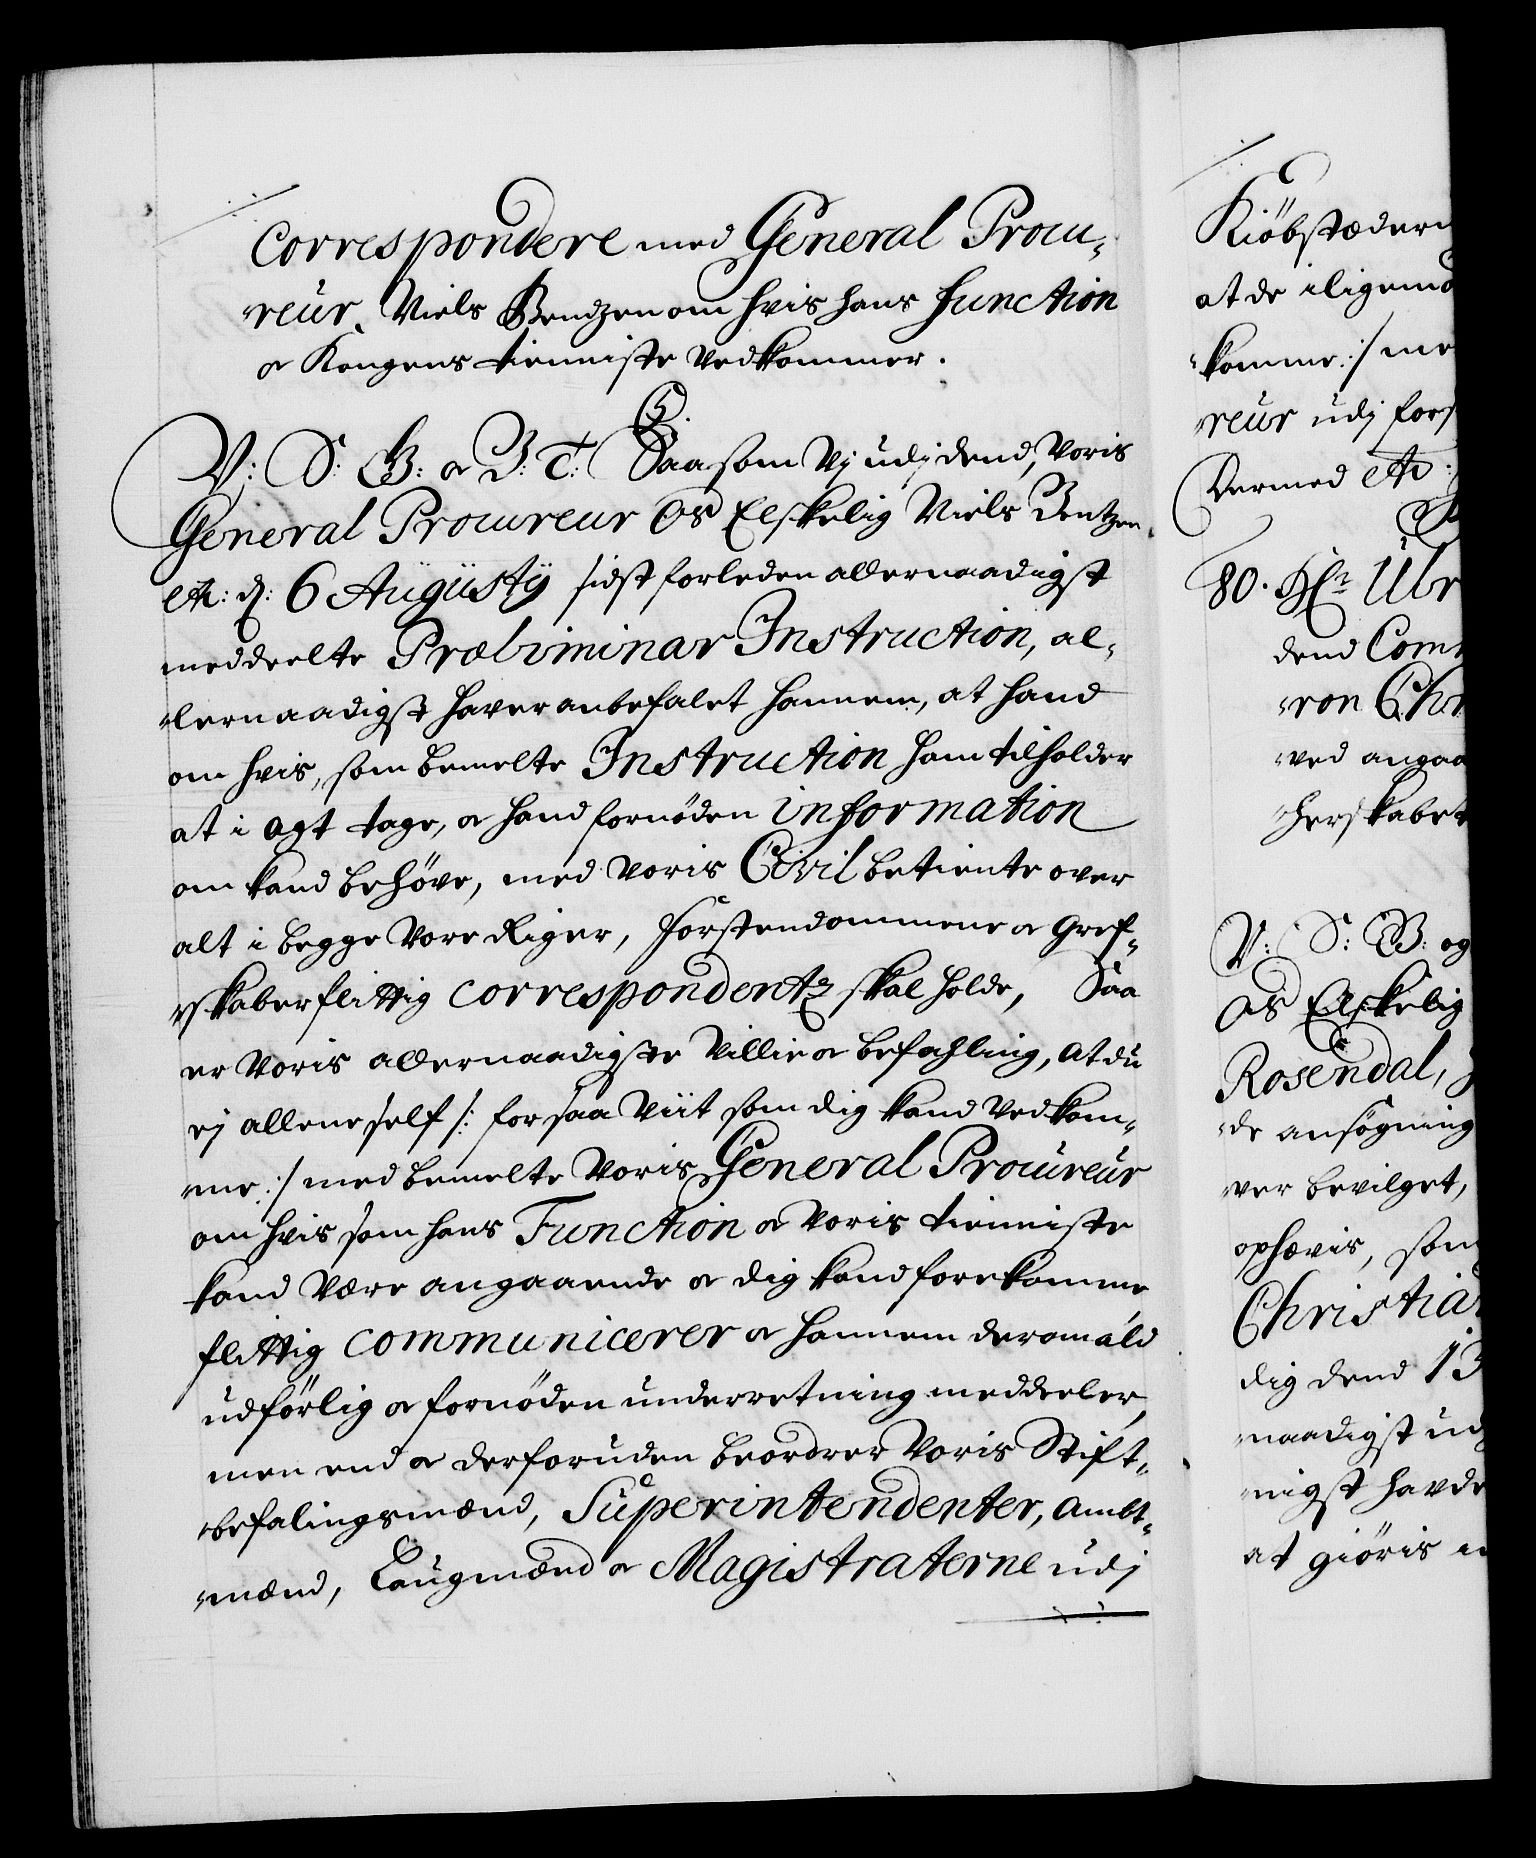 correspondere med General Procu-
reur, Niels Bendzen om hvis hans function
oc Kongens tienniste vedkommer.
C5.
V: S: G: oc B: T: Saasom Vj udj dend, Voris
General Procureur Os Elskelig Niels Bentzen
etc: d: 6 Augustij sidst forleden allernaadigst
meddeelte Præliminar Instruction, al-
lernaadigst haver anbefalet hannem, at hand
om hvis, som bemelte Instruction ham tilholder
at i agt tage, oc hand fornøden information
om kand behøve, med Voris Civil betiente over
alt i begge Vore Riger, Førstendommene oc Gref-
skaber flittig correspondentz skal holde, Saa
er Voris allernaadigste Villie oc befahling, at du
ej allene self /: for saa viit som dig kand vedkom-
me :/ med bemelte Voris General Procureur
om hvis som hans Function oc Voris tienniste
kand være angaaende oc dig kand forekomme
flittig communicerer oc hannem der om ald
udførlig oc fornøden underretning meddeeler,
men end oc derforuden beordrer Voris Stift-
befalingsmænd, Superintendenter, Ambt-
mænd, Laugmænd oc Magistraterne udj
Kiöbstædern
at de iligemaa
komme :/ me
reur udj fors
Dermed etc:
80. Hr: Ulr
dend Com
ron Chr
ved angaa
herskabet
V: S: G: og
Os Elskelig
Rosendal,
de ansøgning
ver bevilget,
ophævis, som
Christia
dig dend 13
naadigst ud
nigst havde
at giöris